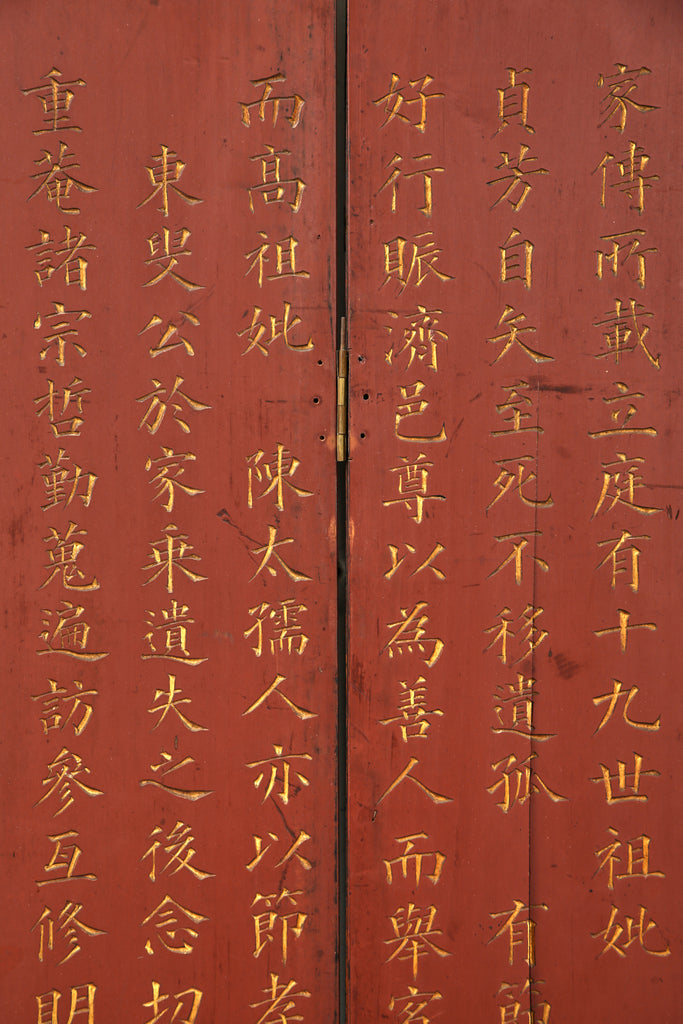 家傳所載立庭有十九世祖妣
貞芳自矢至死不移遺孤　有節
好行賑濟邑尊以為善人而舉客
而高祖妣　陳太孺人亦以節孝
東叟公於家乘遺失之後念切
重菴諸宗哲勤蒐遍訪參互修明